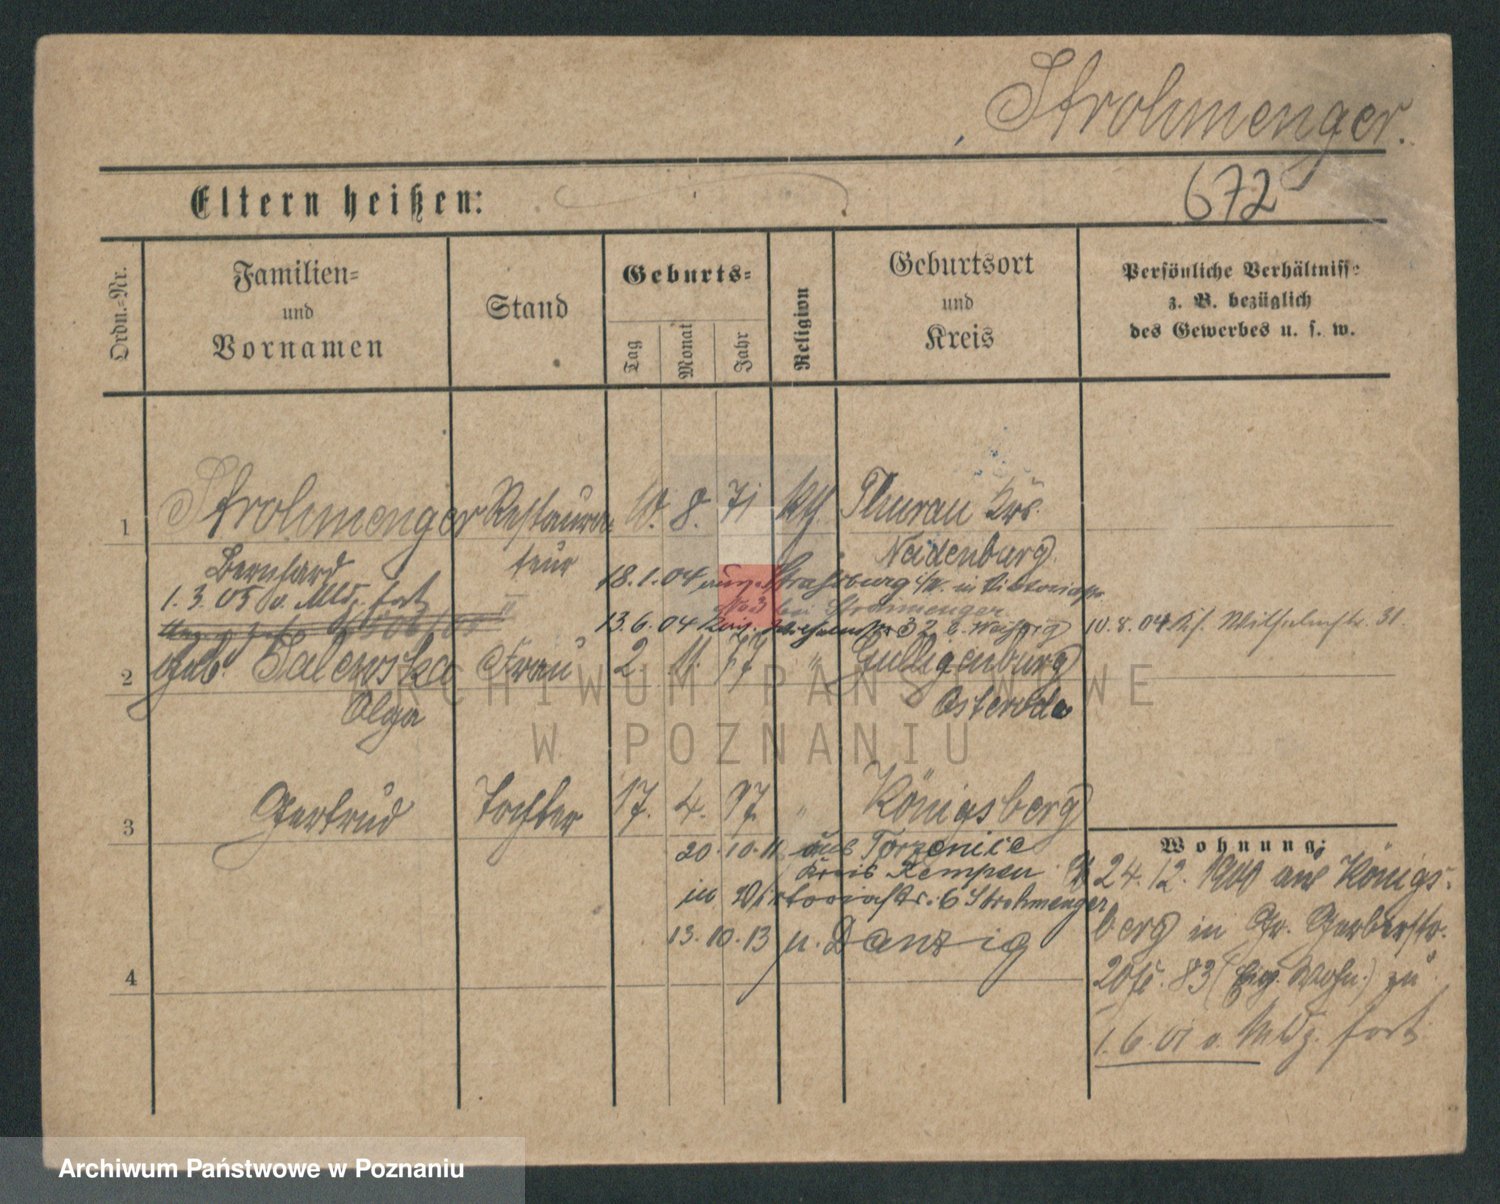 Strohmenger.
Eltern heißen:
672
Ordn.-Nr.
Familien-
und
Vornamen
Stand
Geburts-
Tag
Monat
Jahr
Religion
Geburtsort
und
Kreis
Persönliche Verhältnisse
z. B. bezüglich
des Gewerbes u. s. w.
1 Strohmenger Restaura- 10. 8. 71 Thurau Krs.
Bernhard teur Neidenburg
18.1.04 Straßburg in Viktoriastr.
1.3.05 v. Mldg. fort
No 3 bei Strohmenger
13.6.04 32 b.
10.8.04 Wilhelmstr. 31.
2 geb. Salewska Frau 2 11. 77 "
Olga Osterode
3 Gertrud Tochter 17. 4. 97. " Königsberg
20.10.11 aus Torzeniec
Kreis Kempen
in Viktoriastr. 6 Strohmenger
13.10.13 n. Danzig
4
Wohnung:
24.12.1900 aus Königs-
berg in Gr. Gerberstr.
20 83 zu
1.6.01 v. Mldg. fort
ARCHIWUM PAŃSTWOWE
W POZNANIU
Archiwum Państwowe w Poznaniu